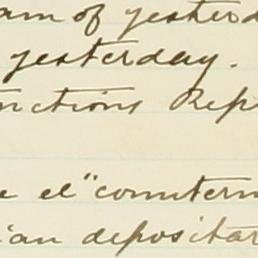 am of yesterd
yesterday.
nctions Rep
e el "counterm
ian depositar